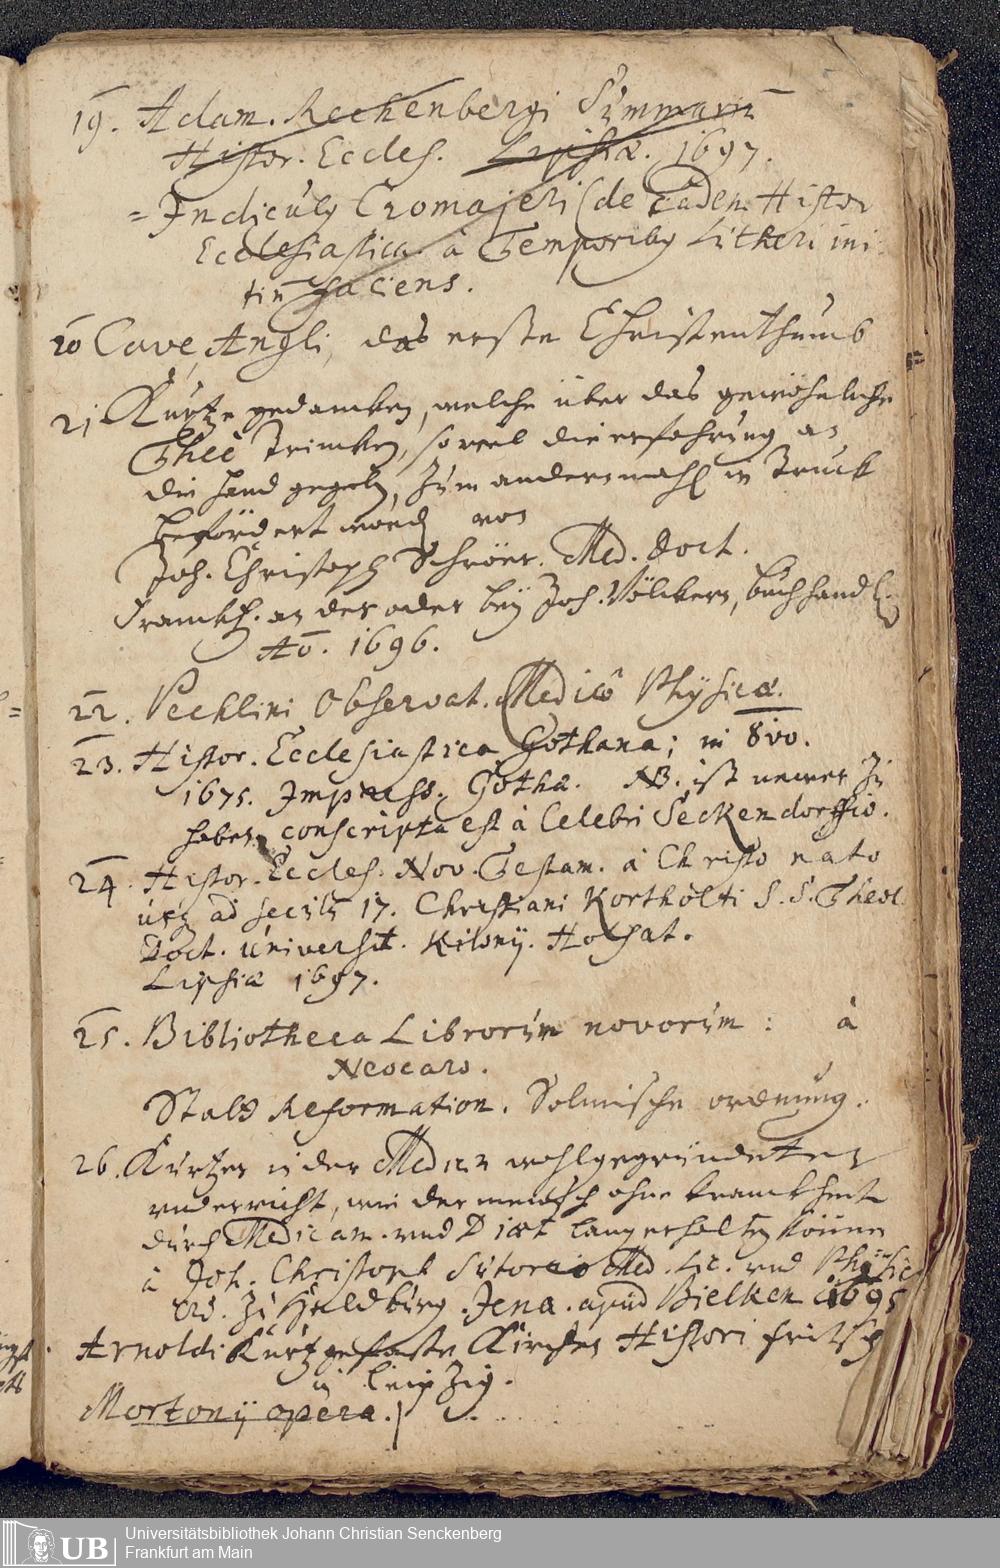 19. Adam. Rechenbergi Summariū
Histor. Eccles. Lipsiæ. 1697.
= Indiculq Cromajeri (de eadem Histor
Ecclesiastica à Temporibq Lutheri ini
tiū faciens.
20 Cave, Angli, das erste Christenthumb
21 Kurtze gedancken, welche über das gewöhnliche
Theè Trincken, so viel die erfahrung an
die Hand gegeben, zum andernmahl in Truck
befördert word von
Joh. Christoph Schröer. Med. Doct.
Franckf. an der oder bey Joh. Völckern, buchhandl.
Aō. 1696.
22. Pechlini Observat. Medicô Physicæ.
23. Histor. Ecclesiastica Gothana; in 8vo.
1675. Impress. Gothæ. NB. ist neuer zu
haben, conscripta est à Celebri Seckendorffio.
24. Histor. Eccles. Nov. Testam. à Christo nato
usq ad seculū 17. Christiani Kortholti S. S. Theol.
Doct. Universit. Kilonij. Holsat.
Lipsiæ 1697.
25. Bibliotheca Librorum novorum: à
Neocaro.
Stads Reformation. Solmische ordnung.
26. Kurtzer in der Medicin wohlgegründeter
underricht, wie der mensch ohne kranckheit
durch Medicam. und Diæt lang erhalten könne
à Joh. Christoph Sutorio Med. Lic. und Physic
Ord. zu Heldburg. Jena. apud Bielken 1695
Arnoldi Kurtzgefaste Kirchen Histori fritsch
in Leipzig.
Mortonij opera.
Universitätsbibliothek Johann Christian Senckenberg
Frankfurt am Main
UB